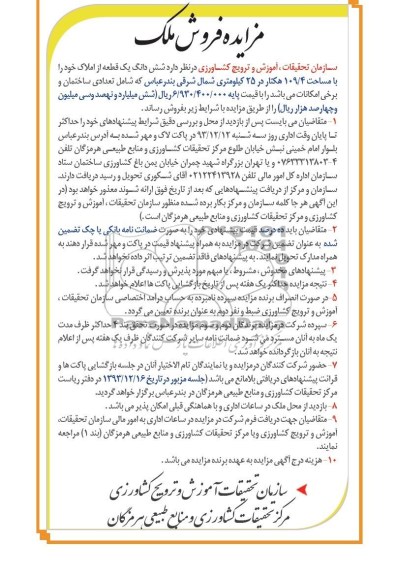 مزایده فروش ملک
سازمان تحقیقات، آموزش و ترویج کشاورزی در نظر دارد شش دانگ یک قطعه از املاک خود را
با مساحت ۱۰۹/۴ هکتار در ۲۵ کیلومتری شمال شرقی بندرعباس که شامل تعدادی ساختمان و
برخی امکانات می باشد را با قیمت پایه ۶/۹۳۰/۴۰۰/۰۰۰ ریال (شش میلیارد و نهصد و سی میلیون
و چهارصد هزار ریال) را از طریق مزایده با شرایط زیر بفروش رساند.
۱- متقاضیان می بایست پس از بازدید از محل و بررسی دقیق شرایط پیشنهادهای خود را حداکثر
تا پایان وقت اداری روز سه شنبه ۹۳/۱۲/۱۲ در پاکت لاک و مهر شده به آدرس بندرعباس
بلوار امام خمینی نبش خیابان طلوع مرکز تحقیقات کشاورزی و منابع طبیعی هرمزگان تلفن
۳-۰۷۶۳۳۳۱۳۸۰۴ و یا تهران بزرگراه شهید چمران خیابان یمن باغ کشاورزی ساختمان ستاد
سازمان اداره کل امور مالی تلفن ۰۲۱۲۲۴۱۳۹۲۸ آقای شگوری تحویل و رسید دریافت دارند.
سازمان و مرکز از دریافت پیشنهادهایی که بعد از تاریخ فوق ارائه شوند معذور خواهد بود (در
این آگهی هر جا کلمه سازمان و مرکز بکار برده شده منظور سازمان تحقیقات، آموزش و ترویج
کشاورزی و مرکز تحقیقات کشاورزی و منابع طبیعی هرمزگان است.)
۲- متقاضیان باید ده درصد قیمت پیشنهادی خود را به صورت ضمانت نامه بانکی یا چک تضمین
شده به عنوان تضمین شرکت در مزایده به همراه پیشنهاد قیمت در پاکت و مهر شده قرار دهند به
همراه مدارک تحویل نمایند. به پیشنهادهای فاقد تضمین ترتیب اثر داده نخواهد شد.
۳- پیشنهادهای مخدوش، مشروط، یا مبهم مورد پذیرش و رسیدگی قرار نخواهد گرفت.
۴- نتیجه مزایده حداکثر یک هفته پس از تاریخ بازگشایی پاکت ها اعلام خواهد شد.
۵- در صورت انصراف برنده مزایده سپرده نامبرده به حساب درآمد اختصاصی سازمان تحقیقات،
آموزش و ترویج کشاورزی ضبط و نفر دوم به عنوان برنده تعیین می گردد.
۶- سپرده شرکت در مزایده برندگان دوم و سوم مزایده در صورت تحقق بند ۴ حداکثر ظرف مدت
یک ماه به آنان مسترد می شود ضمانت نامه سایر شرکت کنندگان ظرف یک هفته پس از اعلام
نتیجه به آنان بازگردانده خواهد شد.
۷- حضور شرکت کنندگان در مزایده و یا نمایندگان تام الاختیار آنان در جلسه بازگشایی پاکت ها و
قرائت پیشنهادهای دریافتی بلامانع می باشد (جلسه مزبور در تاریخ ۱۳۹۳/۱۲/۱۶ در دفتر ریاست
مرکز تحقیقات کشاورزی و منابع طبیعی هرمزگان در بندرعباس برگزار خواهد گردید.
۸- بازدید از محل ملک در ساعات اداری و با هماهنگی قبلی امکان پذیر می باشد.
۹- متقاضیان جهت دریافت فرم شرکت در مزایده در ساعات اداری به امور مالی سازمان تحقیقات،
آموزش و ترویج کشاورزی و یا مرکز تحقیقات کشاورزی و منابع طبیعی هرمزگان (بند ۱) مراجعه
نمایند.
۱۰- هزینه درج آگهی مزایده به عهده برنده مزایده می باشد.
سازمان تحقیقات آموزش و ترویج کشاورزی
مرکز تحقیقات کشاورزی و منابع طبیعی هرمزگان